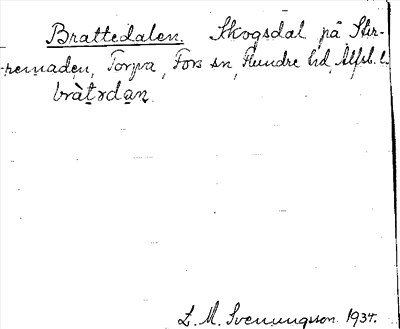 Brattedalen. Skogsdal på Stir-
remaden, Torpa, Fors sn, Flundre hd, Älfsb. l.
bràt̠ɤda̠n̠.
L. M. Svenungsson 1934.